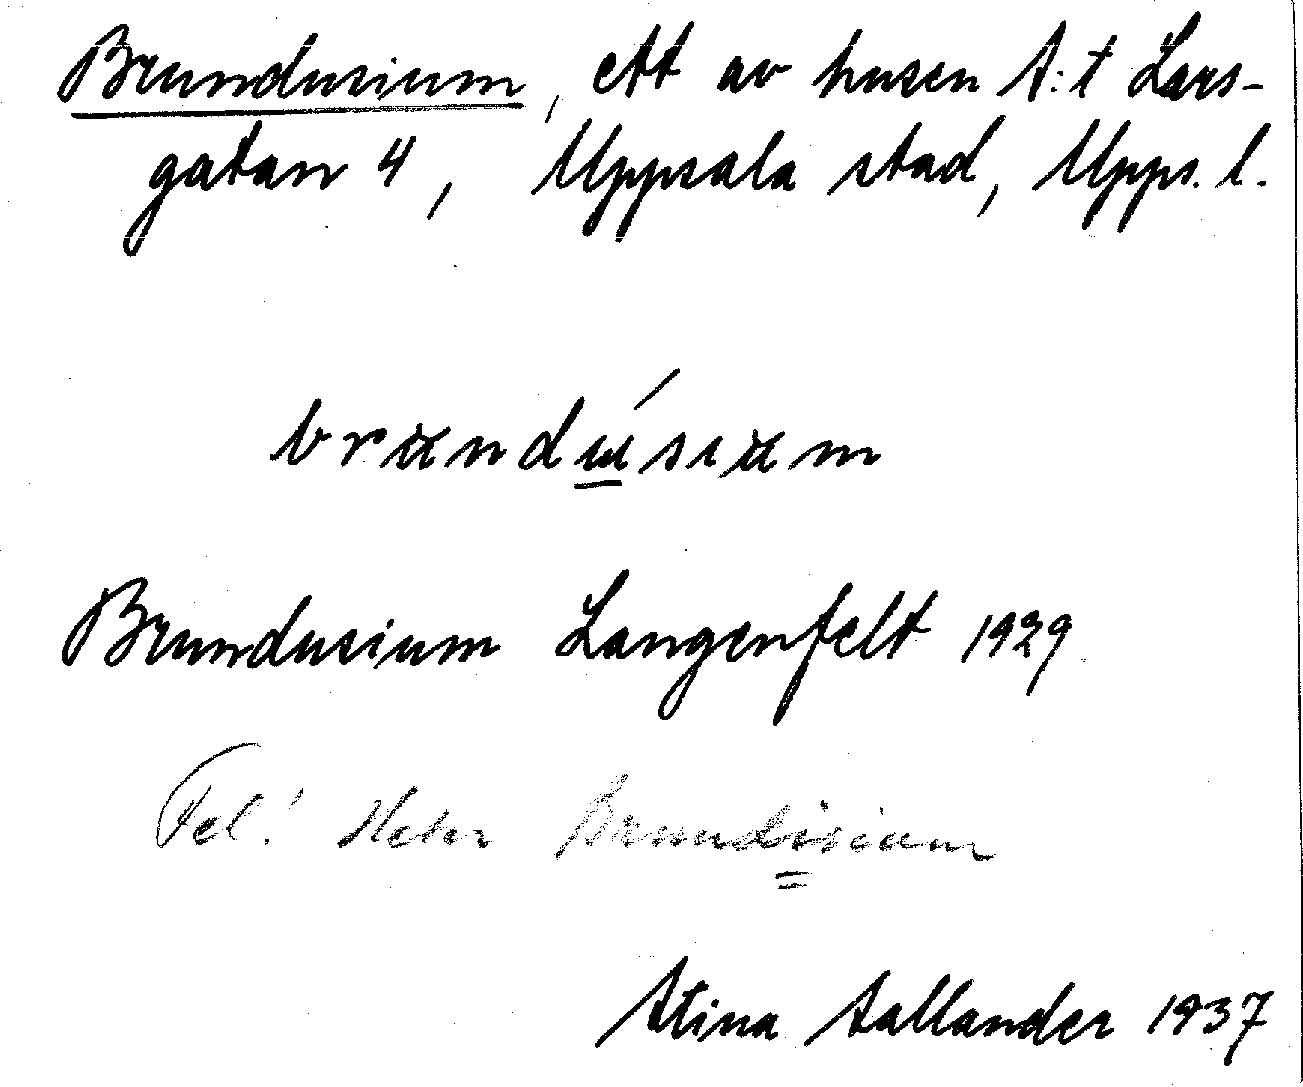 Brundusium, ett av husen S:t Lars-
gatan 4, Uppsala stad, Upps. l.
brundúsium
Brundusium Langenfelt 1929
Fel! Heter Brundisium
Stina Sallander 1937